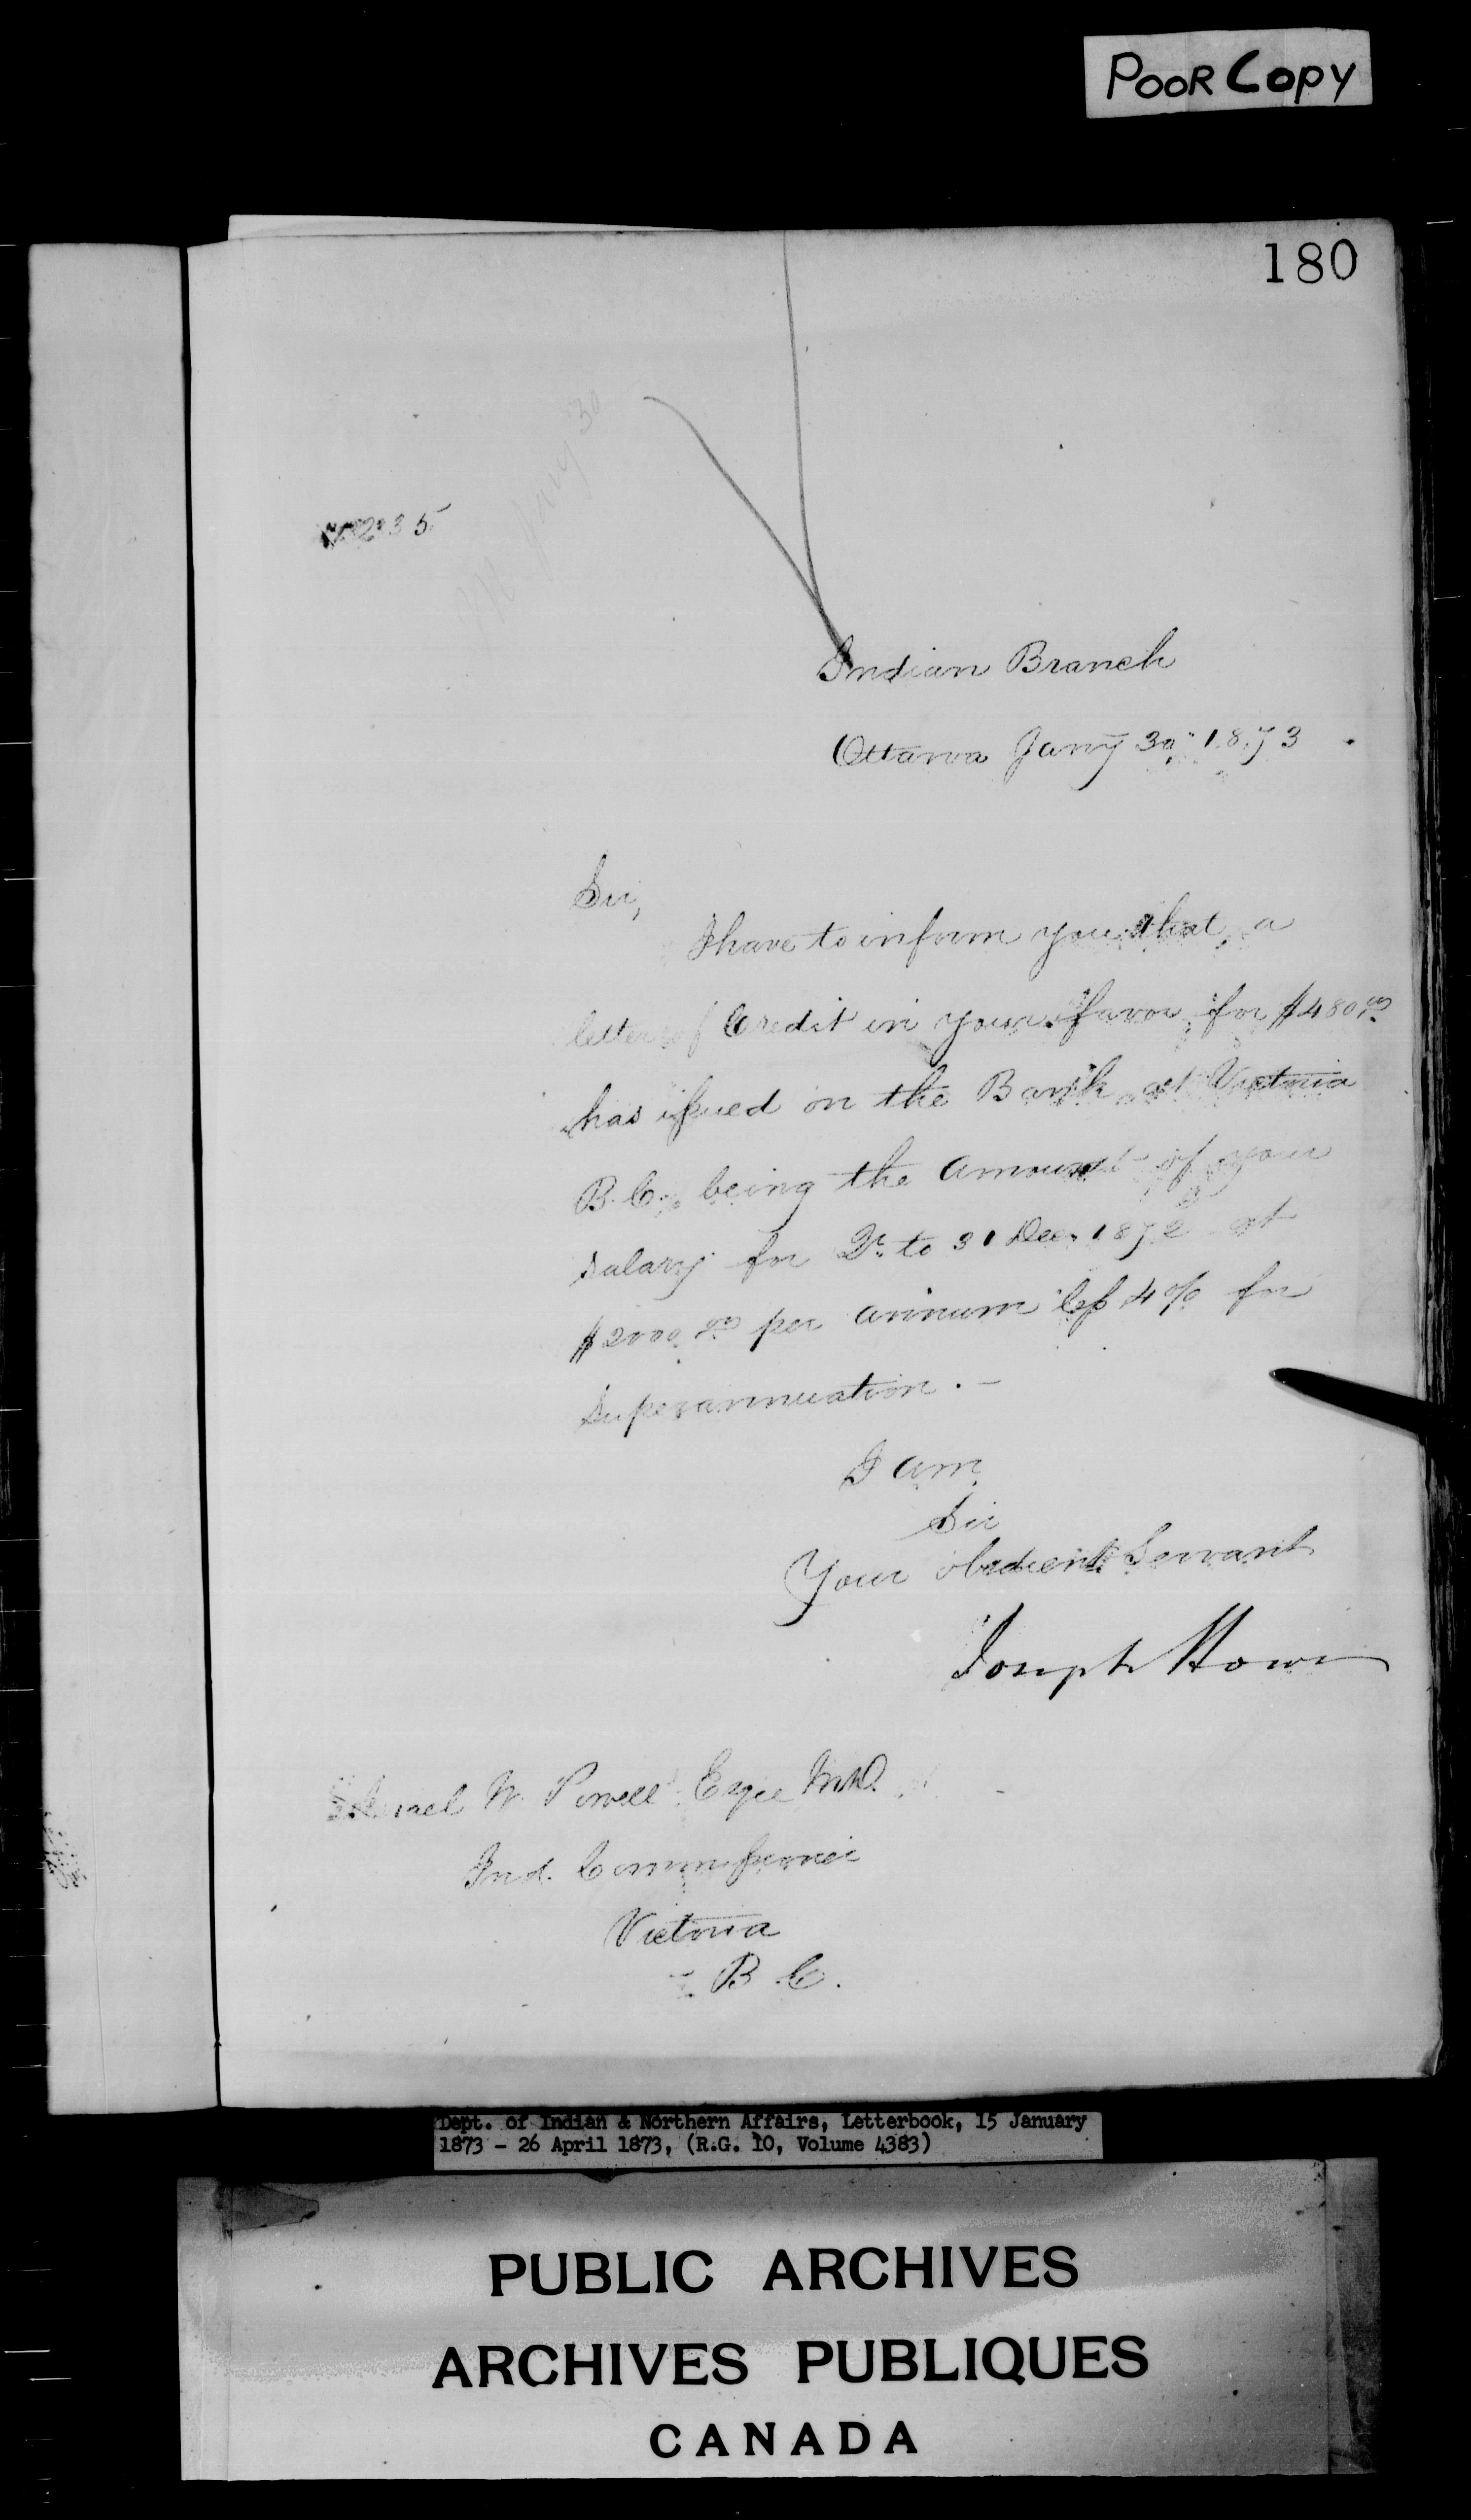 POOR COPY
180
235
Indian Branch
Ottawa Jany 30 1873
Sir,
I have to inform you that a
letter of Credit in your favor for $480.00
has issued on the Bank at Victoria
B.C. being the amount of your
salary for Qr. to 31 Dec. 1872 at
$2000.00 per annum less 4% for
Superannuation. —
I am
Sir
Your obedient Servant
Joseph Howe
W. Powell Esqre M.D.
Ind. Commissioner
Victoria
B.C.
Dept. of Indian & Northern Affairs, Letterbook, 15 January
1873 - 26 April 1873, (R.G. 10, Volume 4383)
PUBLIC ARCHIVES
ARCHIVES PUBLIQUES
CANADA